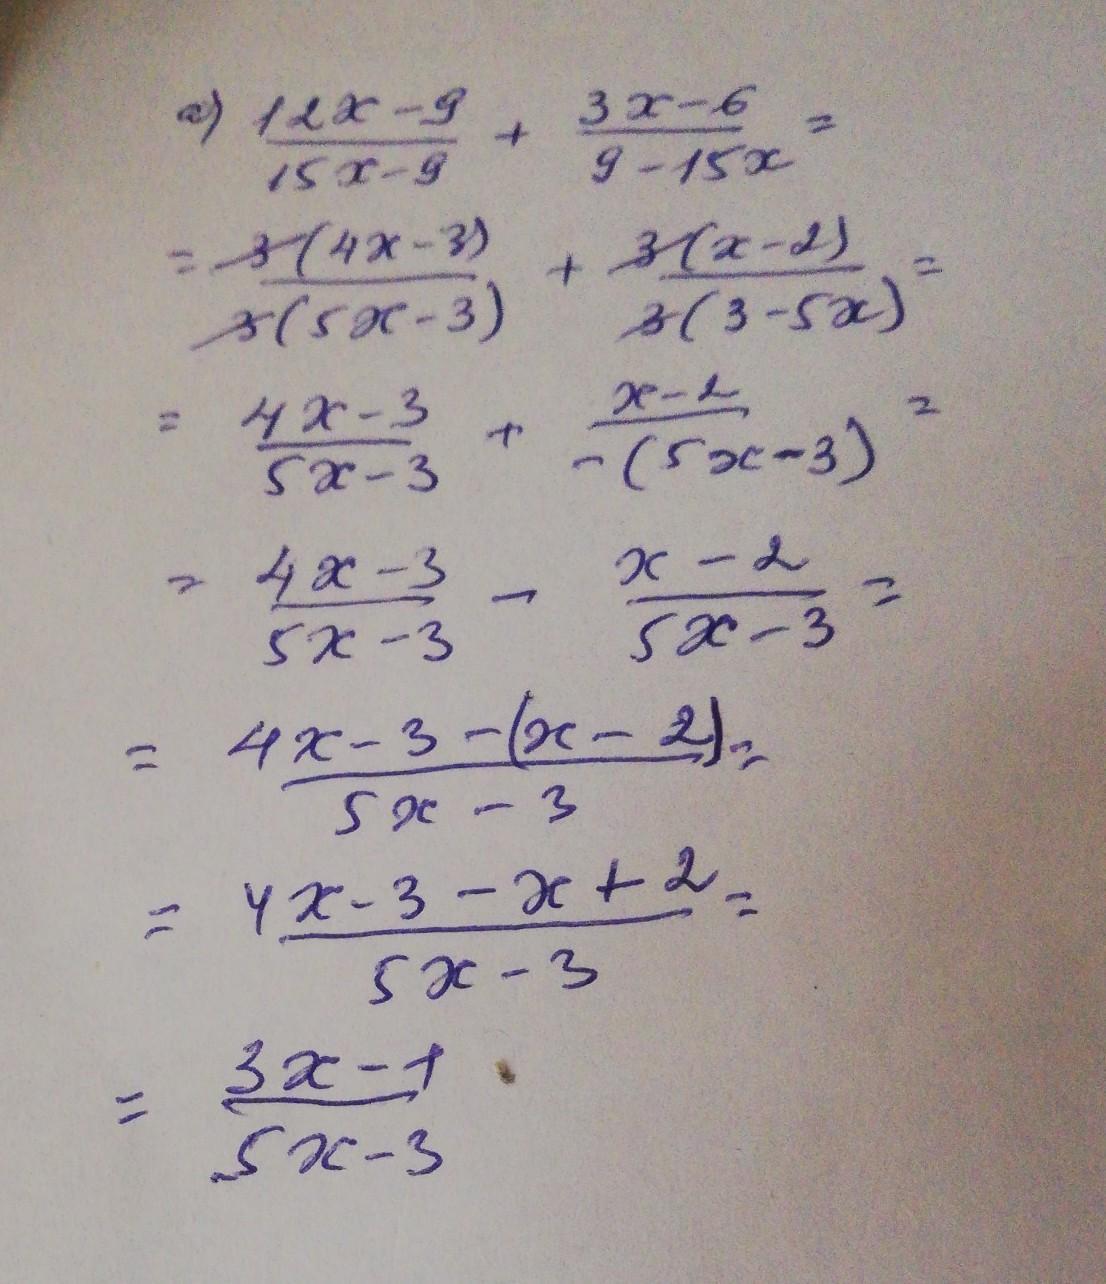 a) (12x-9)/(15x-9) + (3x-6)/(9-15x) =
= 3(4x-3)/3(5x-3) + 3(x-2)/3(3-5x) =
= (4x-3)/(5x-3) + (x-2)/-(5x-3) =
= (4x-3)/(5x-3) - (x-2)/(5x-3) =
= (4x-3-(x-2))/(5x-3) =
= (4x-3-x+2)/(5x-3) =
= (3x-1)/(5x-3)